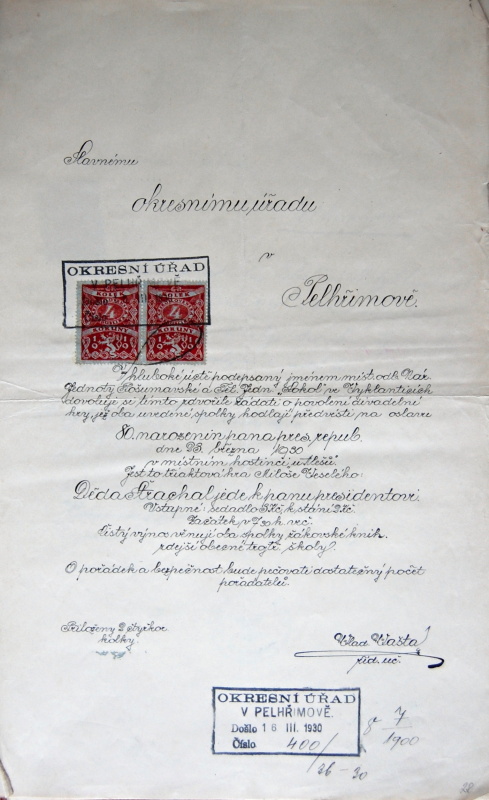 Slavnému
okresnímu úřadu
v
Pelhřimově.
OKRESNÍ ÚŘAD
V PELHŘIMOVĚ
KOLEK KOLEK
4 4
KORUNY KORUNY
V hluboké úctě podepsaný jménem míst. odb. Nár.
Jednoty Pošumavské a Těl. Jedn. Sokol ve Vyklanticích
dovoluje si tímto zdvořile žádati o povolení divadelní
hry, již oba uvedené spolky hodlají předvésti na oslavu
80. narozenin pana pres. repub.
dne března 1930
v místním hostinci u
Jest to tříaktová hra Miloše Veselého:
Děda Strachal jede k panu presidentovi
Vstupné: sedadlo Kč, k stání Kč.
Začátek v 7 h. več.
Čistý výnos věnují oba spolky žákovské knih.
zdejší obecné školy.
O pořádek a bezpečnost bude pečovati dostatečný počet
pořadatelů.
Přiloženy
kolky
Vlad. Vašta
říd. uč.
OKRESNÍ ÚŘAD
V PELHŘIMOVĚ.
Došlo 16 III. 1930
Číslo 400/
7
1900
28